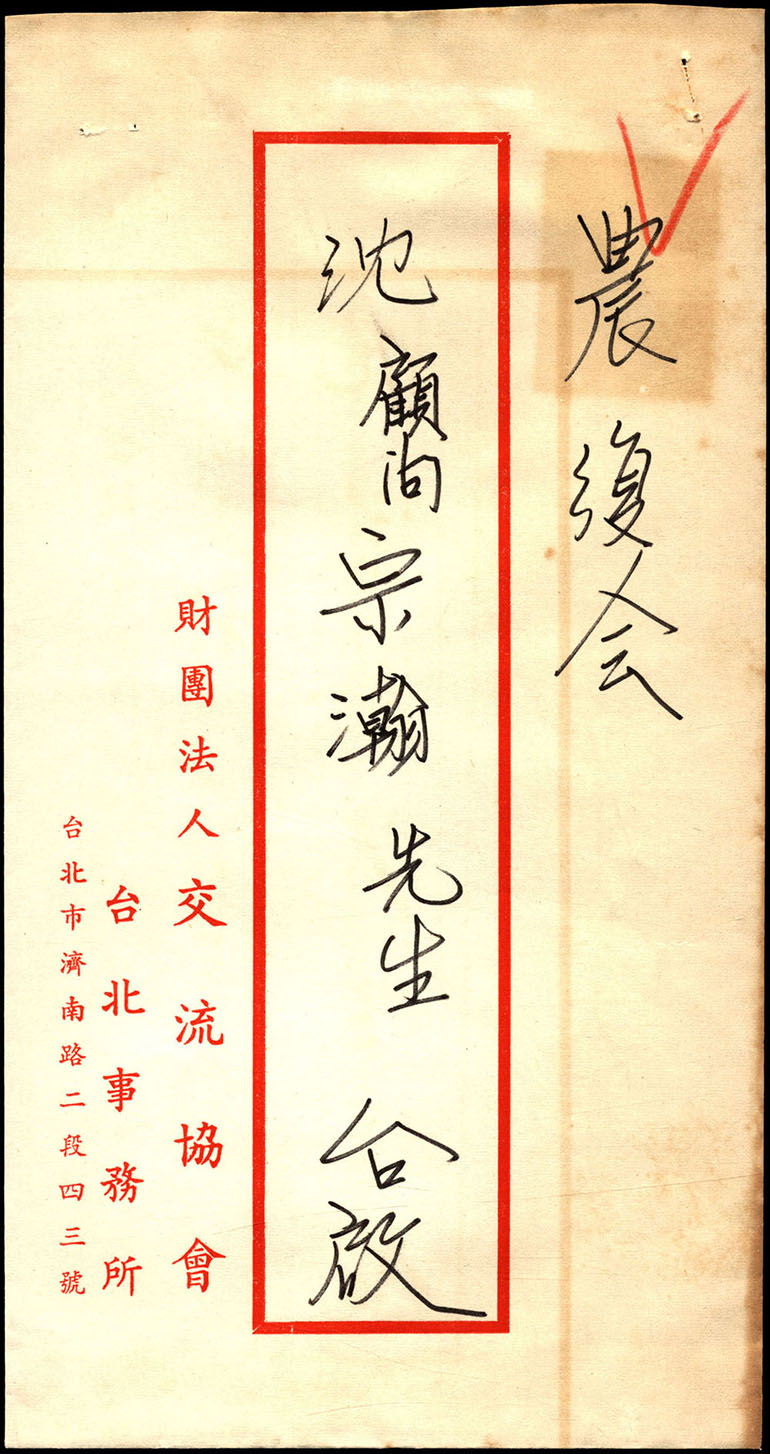 農復会
沈顧问宗瀚先生 台啟
財團法人交流協會
台北事務所
台北市濟南路二段四三號